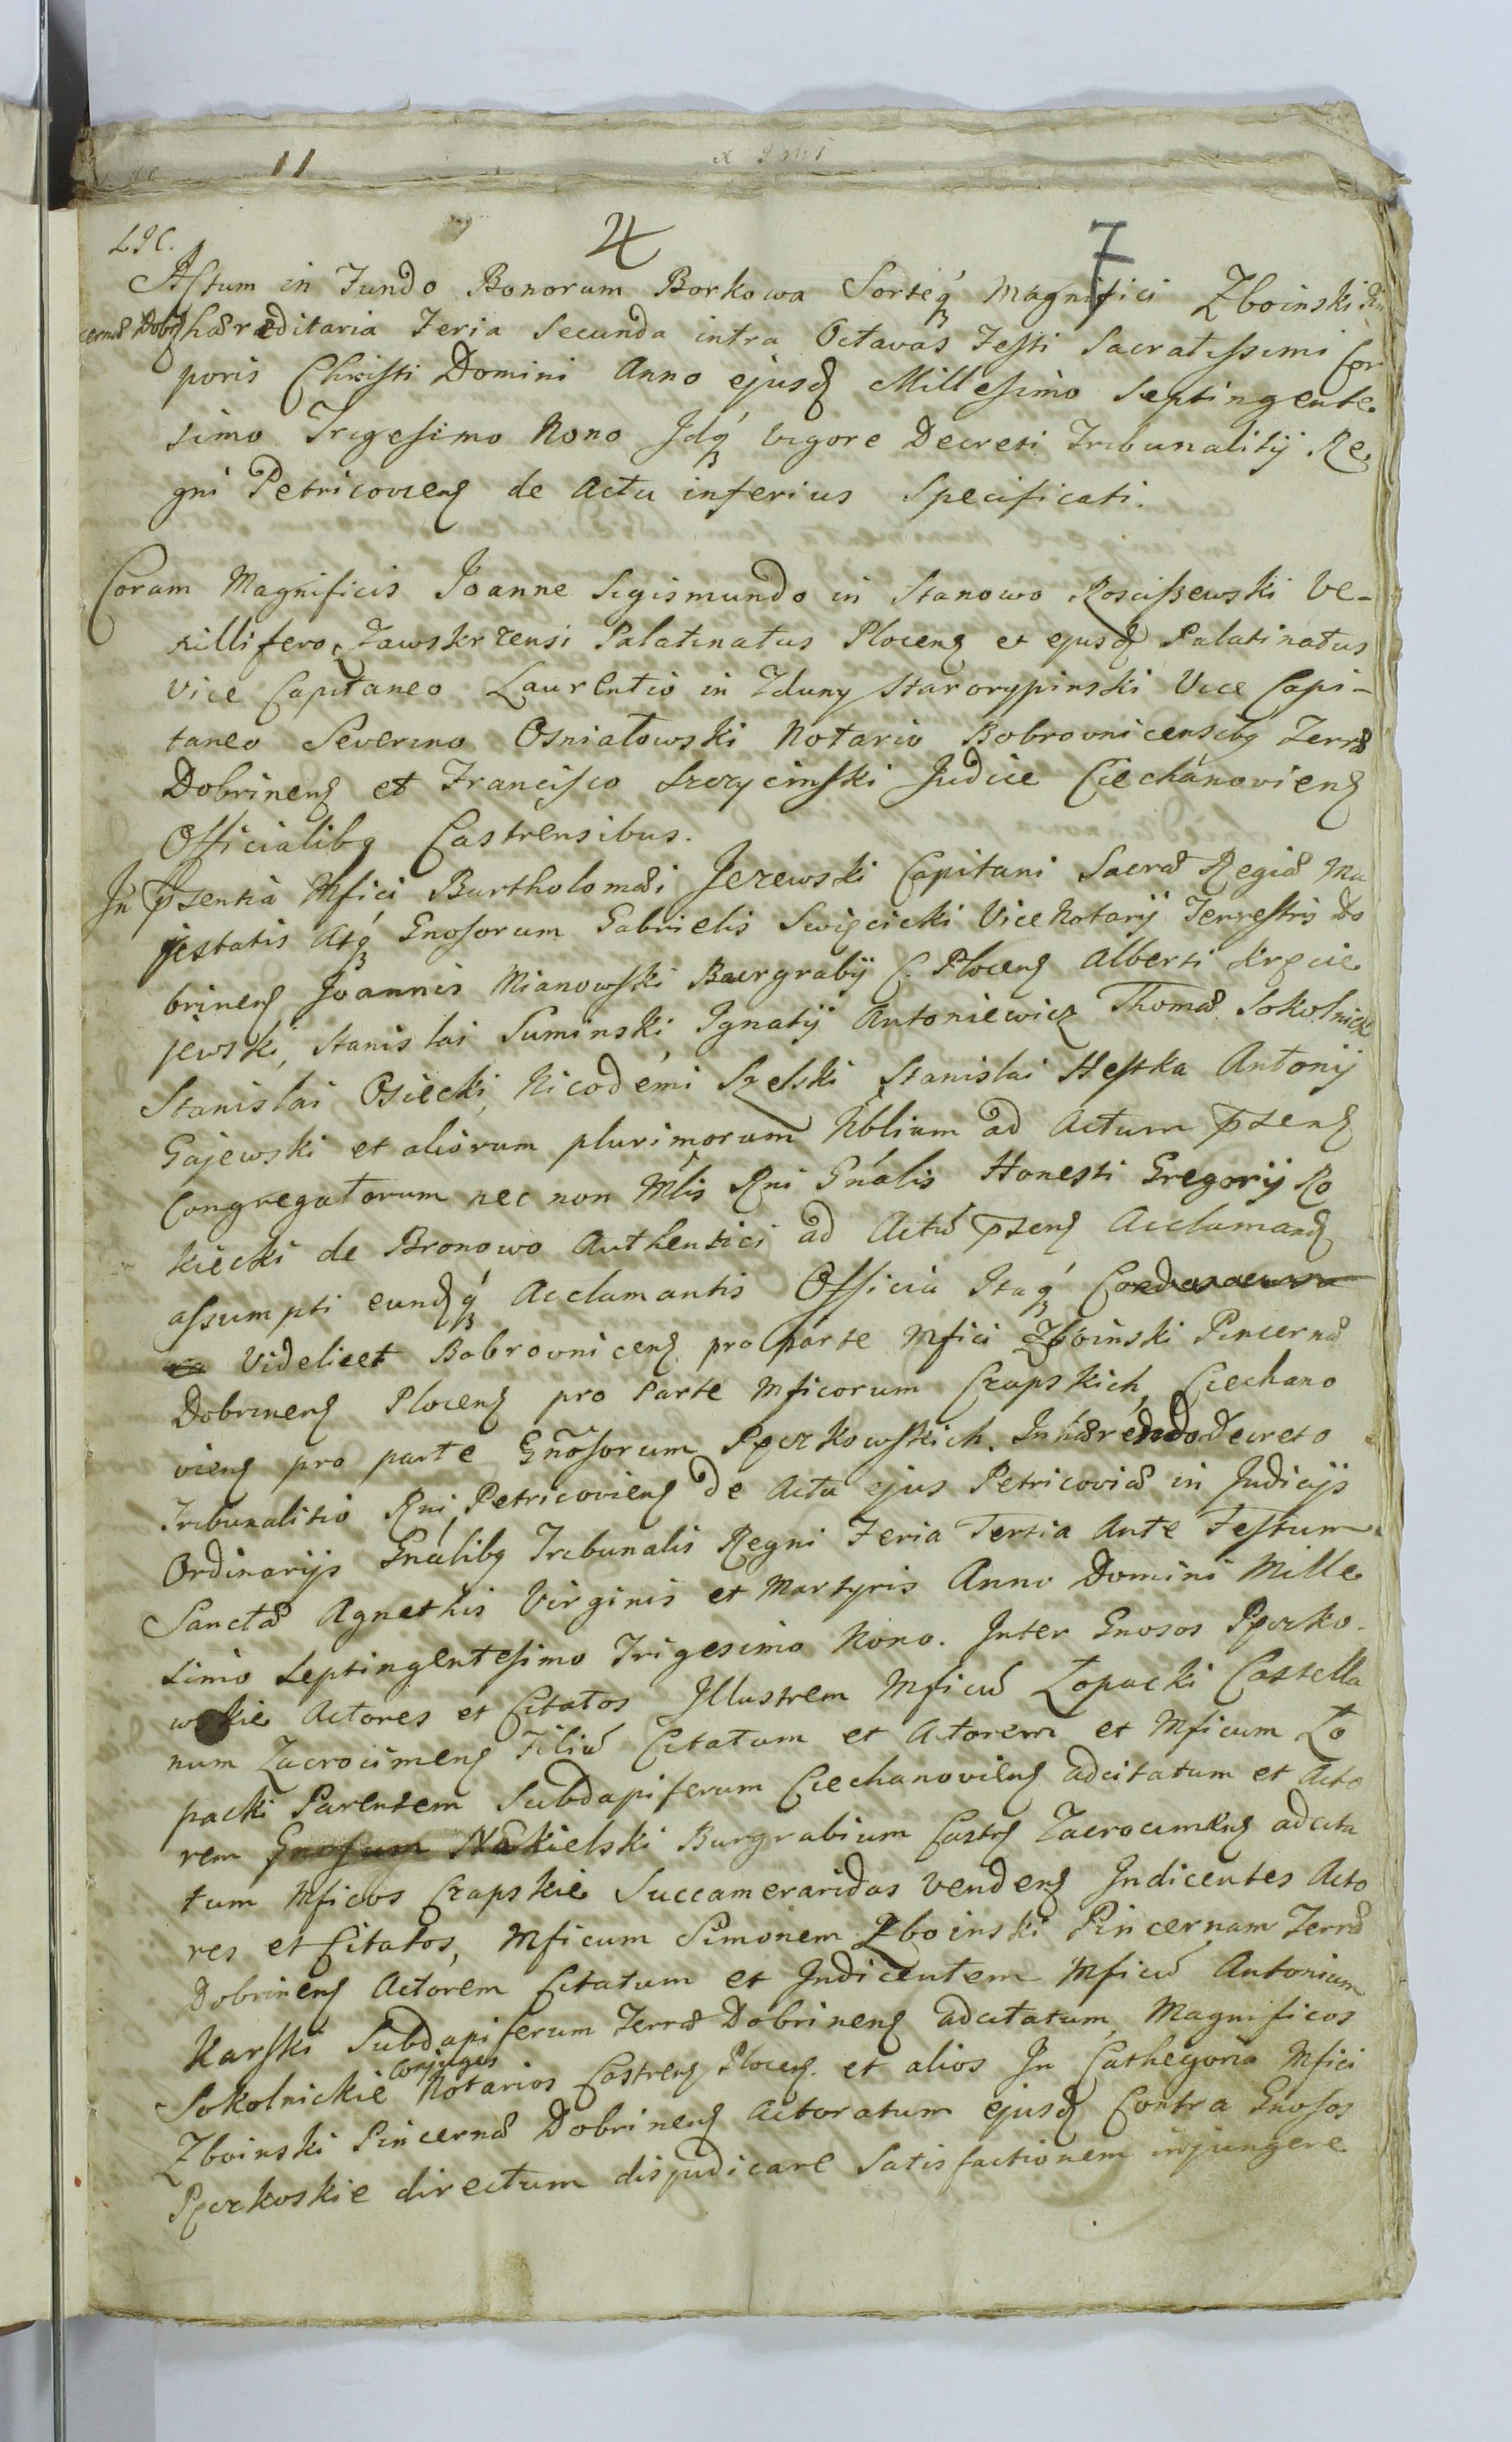 11
LJC.
4
7
Actum in Fundo Bonorum Borkowa Sorteq́ꝫ Magnifici Zboinski Pin
cernæ Dobr hæreditaria Feria Secunda intra Octavas Festi Sacratissimi Cor
poris Christi Domini Anno ejusq Millesimo Septingente
simo Trigesimo Nono Idq́ꝫ vigore Decreti Tribunalitij Re
gni Petricovienq de Actu inferius Specificati.
Coram Magnificis Joanne Sigismundo in Stanowo Rosciszewski Ve-
xillifero Zawskrzensi Palatinatus Plocenq et ejusq Palatinatus
Vice Capitaneo Laurentio in Zduny Starorypinski Vice Capi-
taneo Severino Osniałowski Notario Bobrovnicensibq Terræ
Dobrinenq et Francisco Szczycinski Judice Ciechanovienq
Officialibq Castrensibus.
In Pzentia Mfici Bartholomæi Jezewski Capitani Sacræ Regiæ Ma
jestatis Atq́ꝫ Gnosorum Gabrielis Swięcicki Vice Notarij Terrestris Do
brinenq Joannis Mianowski Burgrabij C. Plocenq Alberti Kręcie
jewski, Stanislai Suminski, Ignatij Antoniewicz Thomæ Sokolnicki
Stanislai Osiecki, Nicodemi Szelski Stanislai Hestka Antonij
Gajewski et aliorum plurimorum Nblium ad Actum Pzenq
Congregatorum nec non Mlis Rni Gnalis Honesti Gregorij Ro
kiecki de Bronowo Authentici ad Actu Pzenq Acclamanq
assumpti eundq́ꝫ Acclamantis Officia Itaq́ꝫ
Videlicet Bobrovnicenq pro parte Mfici Zboinski Pincernæ
Dobrinenq Plocenq pro Parte Mficorum Czapskich, Ciechano
vienq pro parte Gnosorum Pęczkowskich. Inhærendo Decreto
Tribunalitio Rni Petricovienq de Actu ejus Petricoviæ in Judicijs
Ordinarijs Gnalibq Tribunalis Regni Feria Tertia Ante Festum
Sanctæ Agnethis Virginis et Martyris Anno Domini Mille
simo Septingentesimo Trigesimo Nono. Inter Gnosos Pęczko-
wskie Actores et Citatos Illustrem Mficu Łopacki Castella
num Zacrocimenq Filiu Citatum et Actorem et Mficum Ło
packi Parentem Subdapiferum Ciechanovienq adcitatum et Acto
rem Gnosum Nakielski Burgrabium Castrq Zacrocimenq adcita
tum Mficos Czapskie Succameraridas Vendenq Indicentes Acto
res et Citatos, Mficum Simonem Zboinski Pincernam Terræ
Dobrinenq Actorem Citatum et Indicentem Mficu Antonium
Karski Subdapiferum Terræ Dobrinenq adcitatum, Magnificos
Conjuges
Sokolnickie Notarios Castrenq Plocenq. et alios In Cathegoria Mfici
Zboinski Pincernæ Dobrinenq Actoratum ejusq Contra Gnosos
Pęczkoskie directum disjudicare Satisfactionem injungere